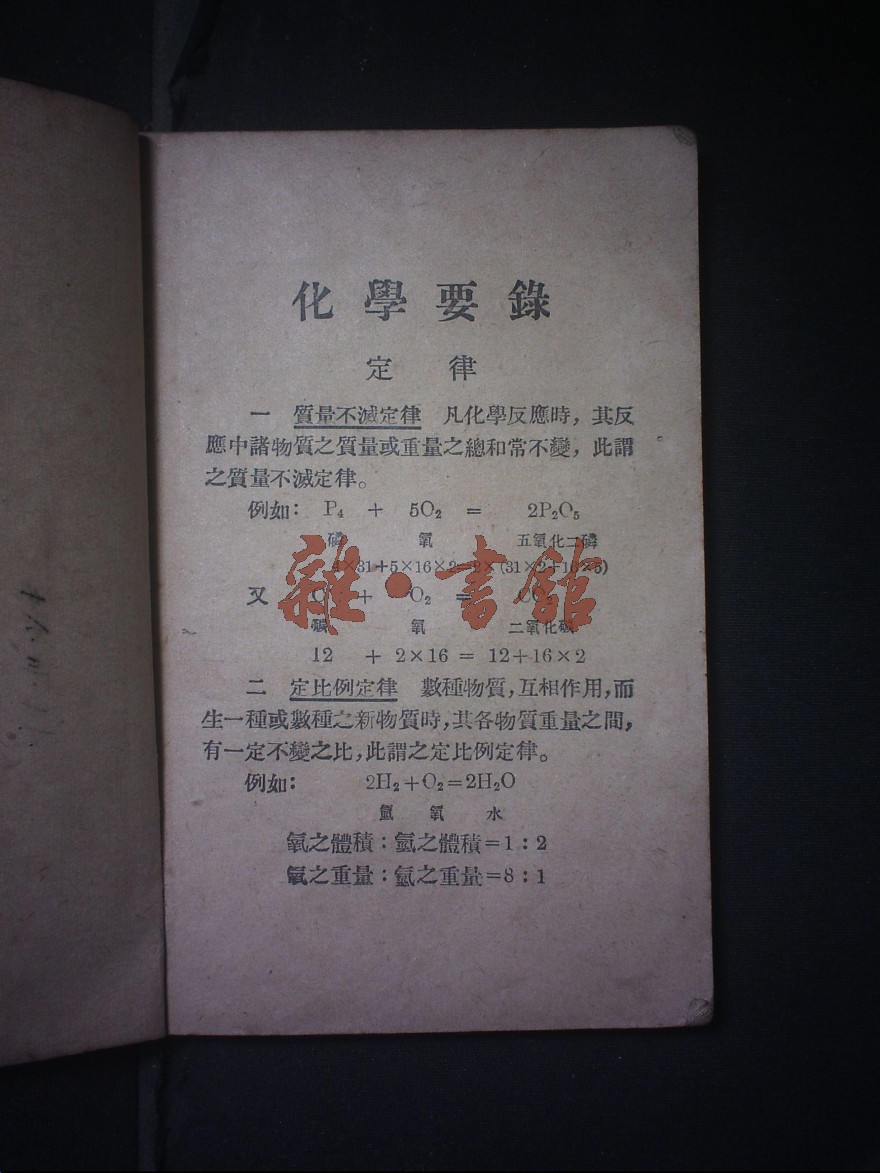 化學要錄
定律
一 質量不滅定律 凡化學反應時，其反
應中諸物質之質量或重量之總和常不變，此謂
之質量不滅定律。
例如： P₄ + 5O₂ = 2P₂O₅
磷 氧 五氧化二磷
4×31+5×16×2=2×(31×2+16×5)
又 C + O₂ = CO₂
氧 二氧化碳
12 + 2×16 = 12+16×2
二 定比例定律 數種物質，互相作用，而
生一種或數種之新物質時，其各物質重量之間，
有一定不變之比，此謂之定比例定律。
例如： 2H₂+O₂=2H₂O
氫 氧 水
氧之體積：氫之體積=1：2
氧之重量：氫之重量=8：1
雜·書館